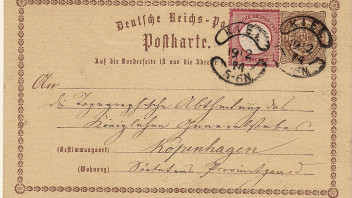 Deutsche Reichs-Po
Postkarte.
Auf die Vorderseite ist nur die Adre
KIEL
19 2
74
5-6N
KIEL
19 2
74
N
An
die Topographische Abtheilung des
Königlichen Generalstabes
(Bestimmungsort)
Kopenhagen
(Wohnung)